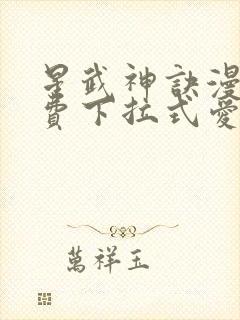 星武神訣漫
費下拉式愛
萬祥玉